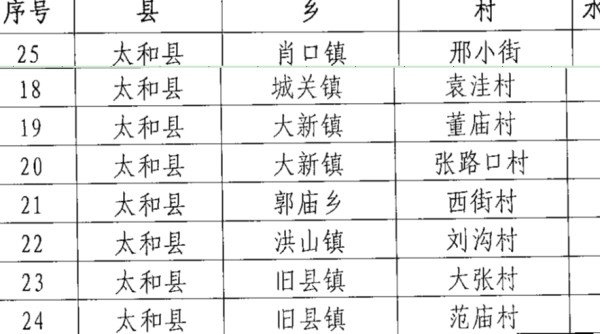 序号 县 乡 村 水
25 太和县 肖口镇 邢小街
18 太和县 城关镇 袁洼村
19 太和县 大新镇 董庙村
20 太和县 大新镇 张路口村
21 太和县 郭庙乡 西街村
22 太和县 洪山镇 刘沟村
23 太和县 旧县镇 大张村
24 太和县 旧县镇 范庙村